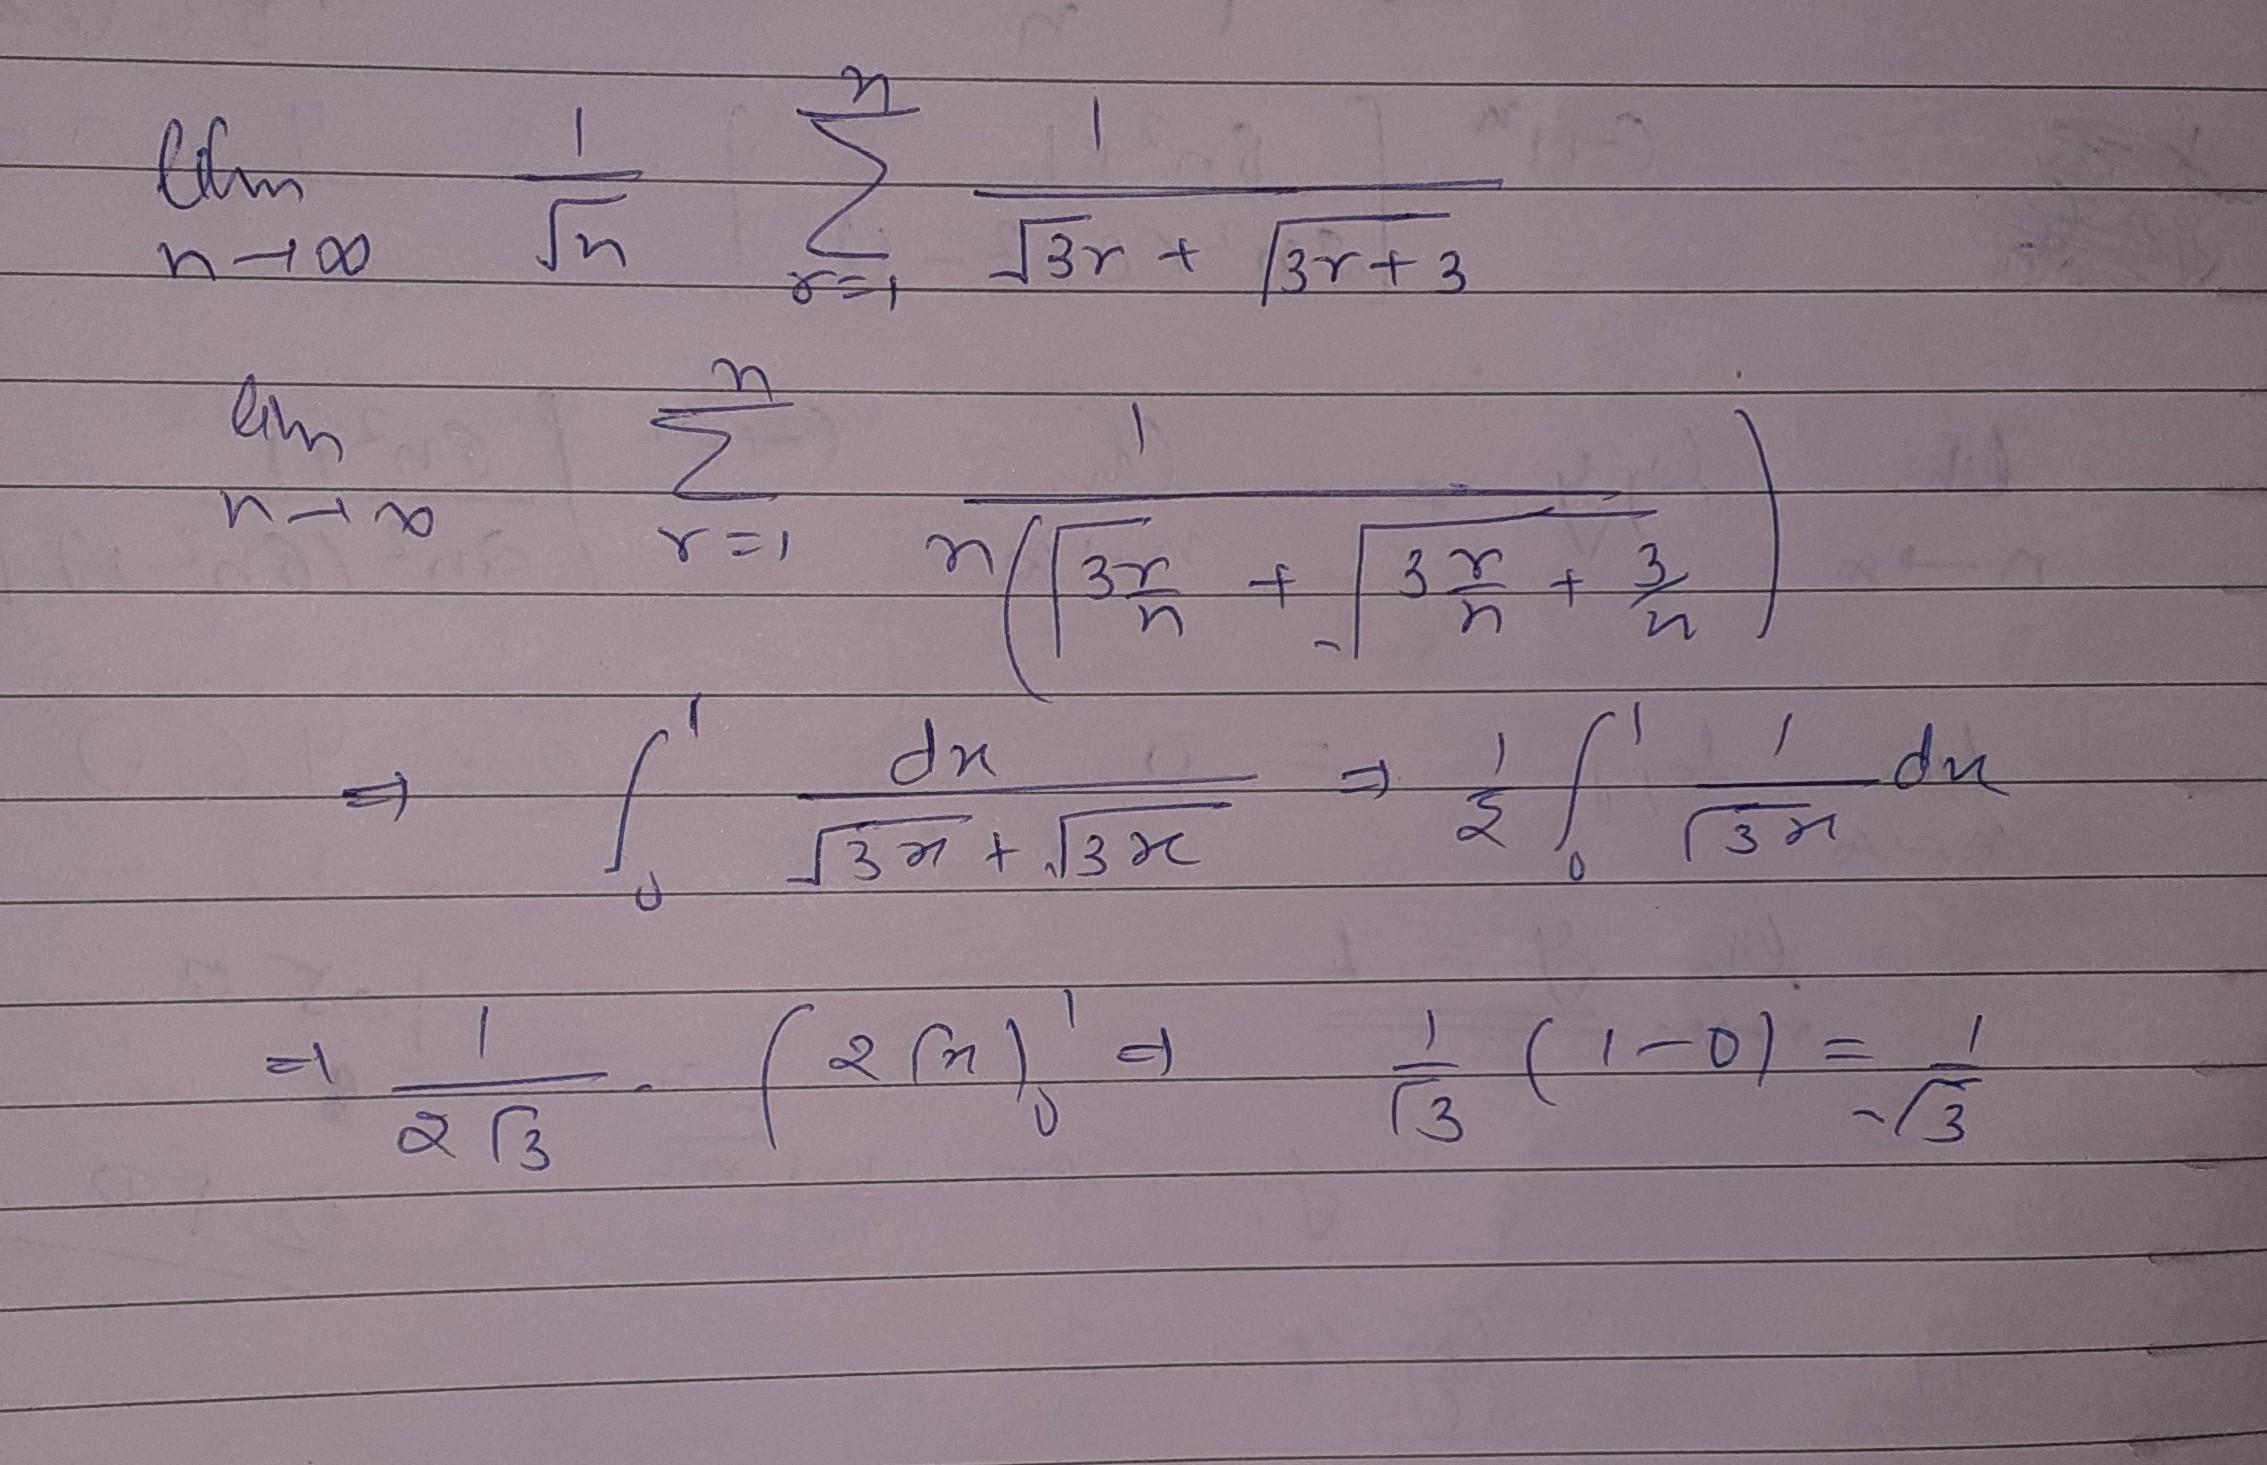 lim n→∞ 1/√n Σ_{r=1}^{n} 1/(√3r + √3r+3)
lim n→∞ Σ_{r=1}^{n} 1/(n(√(3r/n) + √(3 r/n + 3/n)))
⇒ ∫_0^1 dx/(√3x + √3x) ⇒ 1/2 ∫_0^1 1/√3x dx
⇒ 1/(2√3) · (2√x)_0^1 ⇒ 1/√3 (1-0) = 1/√3